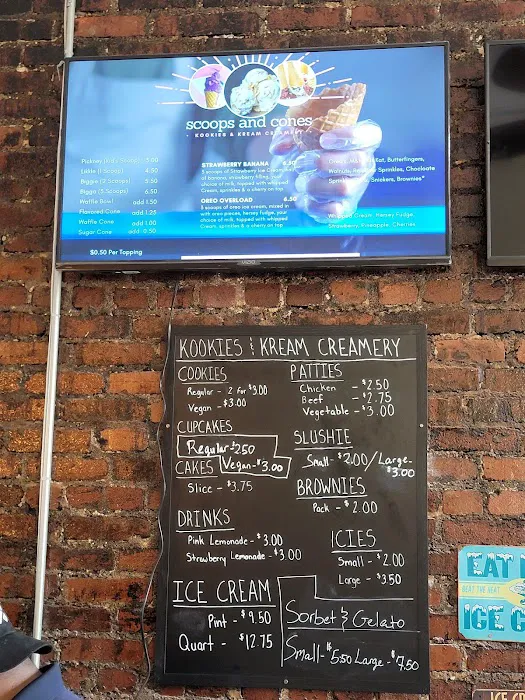 scoops and cones
KOOKIES & KREAM CREAMERY
3.00
Likkle (1 Scoop) 4.50
Biggie (2 Scoops) 5.50
Biggie (3 Scoops) 6.50
Waffle Bowl add 1.50
Flavored Cone add 1.25
Waffle Cone add 1.00
Sugar Cone add 0.50
$0.50 Per Topping
STRAWBERRY BANANA 6.50
3 scoops of Strawberry Ice Cream
of banana, strawberry filling, your
choice of milk, topped with whipped
Cream, sprinkles & a cherry on top
OREO OVERLOAD 6.50
3 scoops of oreo ice cream, mixed in
with oreo pieces, hersey fudge, your
choice of milk, topped with whipped
Cream, sprinkles & a cherry on top
Kat, Butterfingers,
Walnuts, Sprinkles, Choclcate
Snickers, Brownies*
Whipped Cream, Hersey Fudge,
Strawberry, Pineapple, Cherries
VIZIO
KOOKIES & KREAM CREAMERY
COOKIES
Regular - 2 for $3.00
Vegan - $3.00
CUPCAKES
Regular - $2.50
Vegan - $3.00
CAKES
Slice - $3.75
DRINKS
Pink Lemonade - $3.00
Strawberry Lemonade - $3.00
ICE CREAM
Pint - $9.50
Quart - $12.75
PATTIES
Chicken - $2.50
Beef - $2.75
Vegetable - $3.00
SLUSHIE
Small - $2.00 / Large - $3.00
BROWNIES
Pack - $2.00
ICIES
Small - $2.00
Large - $3.50
Sorbet & Gelato
Small - $5.50 Large - $7.50
EAT
BEAT THE HEAT
ICE C
ICE CR